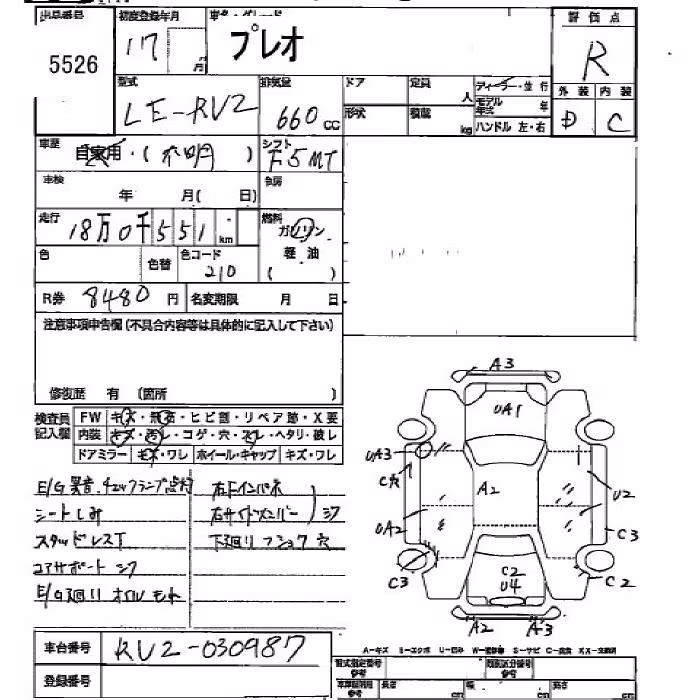 出品番号 初度登録年月 車名・グレード 評価点
5526 17 月 プレオ R
型式 排気量 ドア 定員 ディーラー・並行 外装 内装
LE-RV2 660 cc 形状 積載 人 モデル年式 年 D C
kg ハンドル 左・右
車歴 自家用・(不明) シフト F5MT
車検 年 月( 日) 冷房
走行 18万0千551 km 燃料 ガソリン
軽油
色 色替 色コード 210 ( )
R券 8480 円 名変期限 月 日
注意事項申告欄(不具合内容等は具体的に記入して下さい)
修復歴 有 (箇所 )
検査員記入欄 FW キズ・飛石・ヒビ割・リペア跡・X要
内装 キズ・汚レ・コゲ・穴・スレ・ヘタリ・破レ
ドアミラー キズ・ワレ ホイール・キャップ キズ・ワレ
E/G異音.チェックランプ点灯 右Fインパネ
シートしみ 右サイドメンバー
スタッドレスT 下廻り フショク 穴
コアサポート
E/G廻り オイルもれ
A3
UA1
UA3
A2
U2
UA2
C3
C3
C2
U4
C2
A2 A3
車台番号 RV2-030987
A-キズ E-エクボ U-凹み W-補修跡 S-サビ C-腐食 XX-交換済
登録番号 型式指定番号 類別区分番号
長さ cm 幅 cm 高さ cm